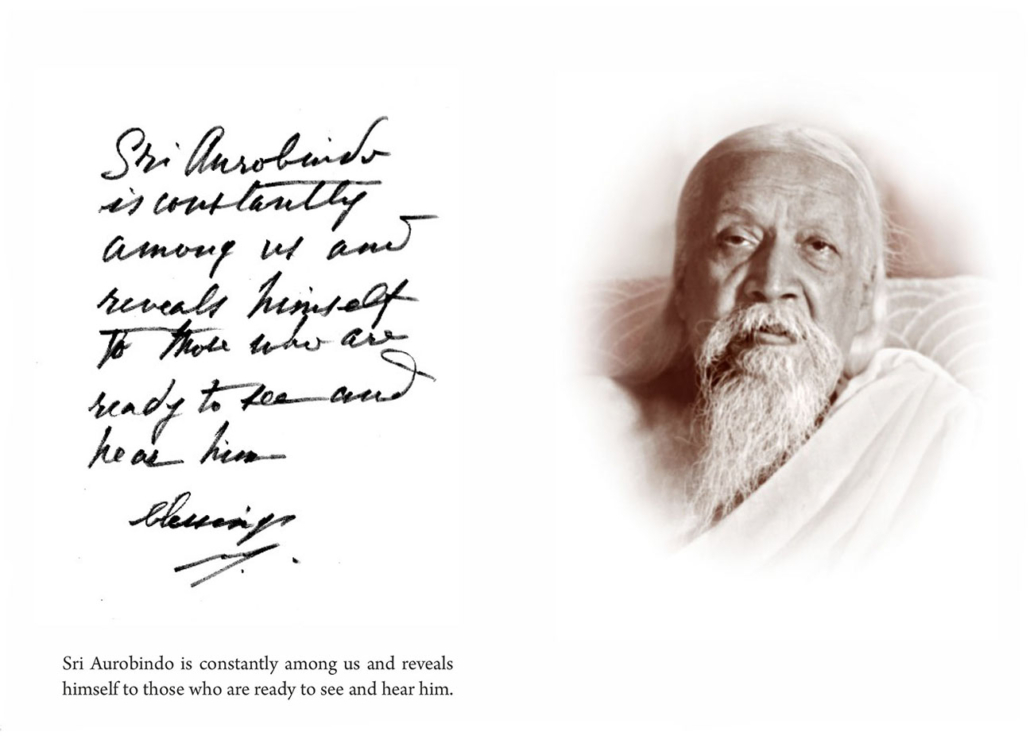 Sri Aurobindo
is constantly
among us and
reveals himself
to those who are
ready to see and
hear him
blessings
Sri Aurobindo is constantly among us and reveals
himself to those who are ready to see and hear him.